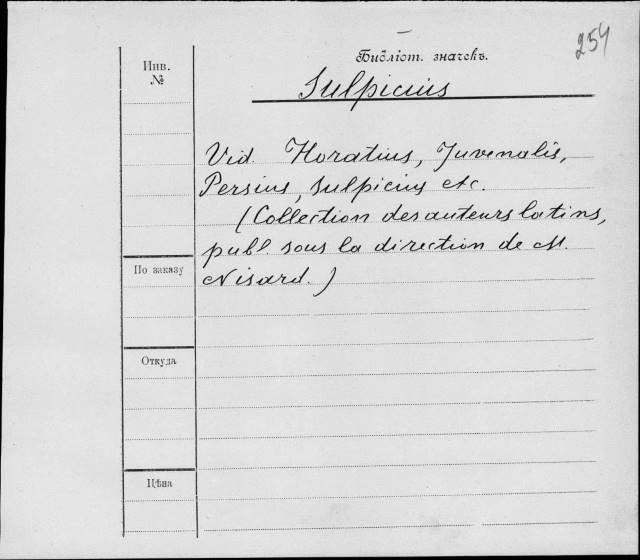 254
Библіот. значекъ.
Sulpicius
Инв.
№
Vid. Horatius, Juvenalis,
Persius, Sulpicius etc.
(Collection des auteurs latins,
publ. sous la direction de M.
Nisard.)
По заказу
Откуда
Цѣна